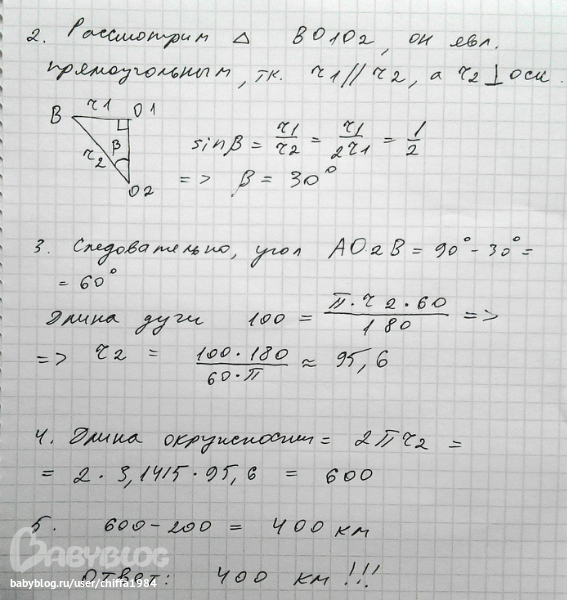 2. Рассмотрим △ BO1O2, он явл.
прямоугольным, тк. r1//r2, а r2⊥оси.
B r1 O1
r2 β
O2
sinβ = r1/r2 = r1/2r1 = 1/2
=> β = 30°
3. Следовательно, угол AO2B = 90°-30° =
= 60°
Длина дуги 100 = π·r2·60/180 =>
=> r2 = 100·180/60·π ≈ 95,6
4. Длина окружности = 2πr2 =
= 2·3,1415·95,6 = 600
5. 600-200 = 400 км
BABYBLOG
Ответ: 400 км!!!
babyblog.ru/user/chiffa1984